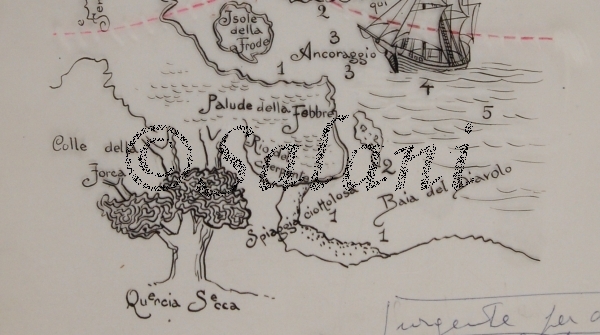 qui
2
Isole
della
Frode
3
Ancoraggio
1
3
4
Palude della Febbre
5
Colle della
Forca
Rio del
Serpente
2
Spiaggia ciottolosa
1
Baia del Diavolo
1
Quercia Secca
urgente per
© Saloni